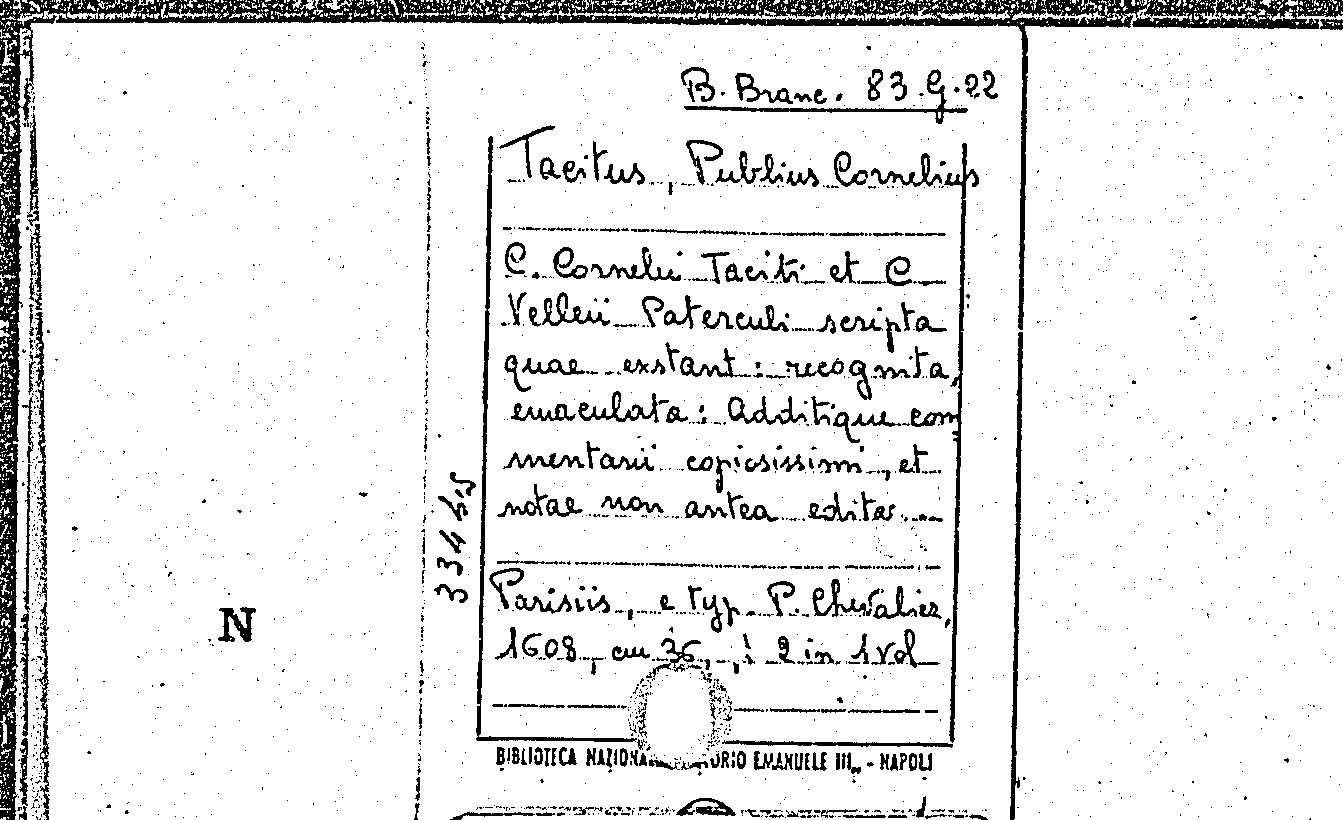 B. Branc. 83.G.22
Tacitus, Publius Cornelius
C. Cornelii Taciti et C
Velleii Paterculi scripta
quae exstant: recognita,
emaculata: Additique com
mentarii copiosissimi, et
notae non antea editae...
Parisiis, e typ. P. Chevalier,
1608, cm 36, 2 in 1 vol
BIBLIOTECA EMANUELE III - NAPOLI
N